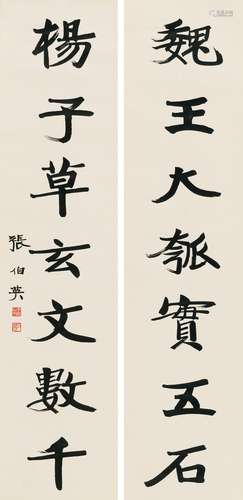 魏王大瓠實五石
楊子草玄文數千
張伯英